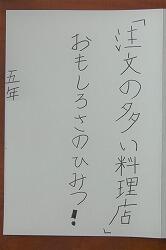 「注文の多い料理店」
おもしろさのひみつ!
五年